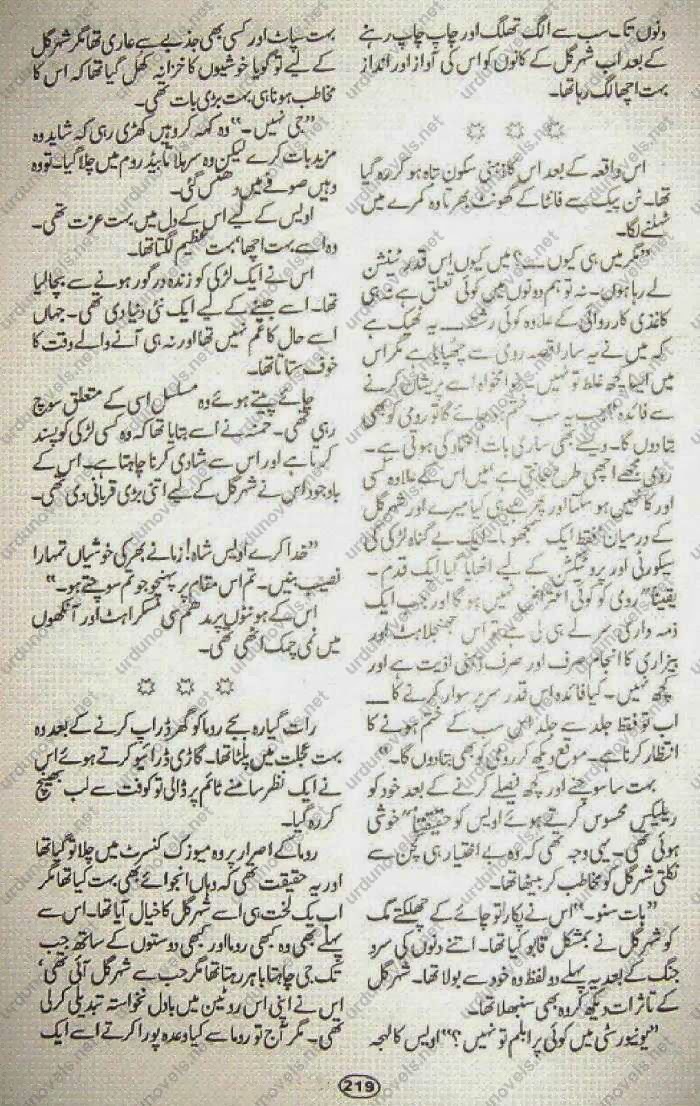 دنوں تک سب سے الگ تھلگ اور چاپ چاپ رہنے
کے بعد اب شہر گل کے کانوں کو اس کی آواز اور انداز
بہت اچھا لگ رہا تھا۔
اس واقعہ کے بعد اس کا ذہنی سکون تباہ ہو کر رہ گیا
تھا۔ ٹن پیک سے فانٹا کے گھونٹ بھرتا وہ کمرے میں
ٹہلنے لگا۔
”مگر میں ہی کیوں۔۔۔؟ میں کیوں اس قدر ٹینشن
لے رہا ہوں۔ نہ تو ہم دونوں میں کوئی تعلق ہے نہ ہی
کاغذی کارروائی کے علاوہ کوئی رشتہ۔۔۔ یہ ٹھیک ہے
کہ میں نے یہ سارا قصہ رومی سے چھپایا ہے مگر اس
میں ایسا کچھ غلط تو نہیں۔ خوامخواہ اسے پریشان کرنے
سے فائدہ؟ جب یہ سب ختم ہو جائے گا تو رومی کو بھی
بتا دوں گا۔ ویسے بھی ساری بات اعتماد کی ہوتی ہے۔
رومی مجھے اچھی طرح جانتی ہے، میں اس کے علاوہ کسی
اور کا نہیں ہو سکتا اور پھر ہے ہی کیا میرے اور شہر گل
کے درمیان فقط ایک سمجھوتا۔ ایک بے گناہ لڑکی کی
سیکورٹی اور پروٹیکشن کے لیے اٹھایا گیا ایک قدم۔
یقیناً رومی کو کوئی اعتراض نہیں ہو گا اور جب ایک
ذمہ داری سر لے ہی لی ہے تو اس جھنجلاہٹ اور
بیزاری کا انجام صرف اور صرف ذہنی اذیت ہے اور
کچھ نہیں۔ کیا فائدہ اس قدر سر پر سوار کرنے کا۔۔۔
اب تو فقط جلد سے جلد اس سب کے ختم ہونے کا
انتظار کرنا ہے۔ موقع دیکھ کر رومی کو بھی بتا دوں گا۔“
بہت سا سوچنے اور کچھ فیصلے کرنے کے بعد خود کو
ریلیکس محسوس کرتے ہوئے اویس کو حقیقتاً خوشی
ہوئی تھی۔ یہی وجہ تھی کہ وہ بے اختیار ہی کچن سے
نکلتی شہر گل کو مخاطب کر بیٹھا تھا۔
”بات سنو۔“ اس نے پکارا تو چائے کے چھلکتے مگ
کو شہر گل نے بمشکل قابو کیا تھا۔ اتنے دنوں کی سرد
جنگ کے بعد یہ پہلے دو لفظ وہ خود سے بولا تھا۔ شہر گل
کے تاثرات دیکھ کر وہ بھی سنبھلا تھا۔
”یونیورسٹی میں کوئی پرابلم تو نہیں؟“ اویس کا لہجہ
بہت سپاٹ اور کسی بھی جذبے سے عاری تھا مگر شہر گل
کے لیے تو گویا خوشیوں کا خزانہ کھل گیا تھا کہ اس کا
مخاطب ہونا ہی بہت بڑی بات تھی۔
”جی نہیں۔“ وہ کہہ کر وہیں کھڑی رہی کہ شاید وہ
مزید بات کرے لیکن وہ سر ہلاتا بیڈ روم میں چلا گیا۔ تو وہ
وہیں صوفے میں دھنس گئی۔
اویس کے لیے اس کے دل میں بہت عزت تھی۔
وہ اسے بہت اچھا، بہت عظیم لگتا تھا۔
اس نے ایک لڑکی کو زندہ درگور ہونے سے بچا لیا
تھا۔ اسے جینے کے لیے ایک نئی دنیا دی تھی۔ جہاں
اسے حال کا غم نہیں تھا اور نہ ہی آنے والے وقت کا
خوف ستاتا تھا۔
چائے پیتے ہوئے وہ مسلسل اسی کے متعلق سوچ
رہی تھی۔ حمنہ نے اسے بتایا تھا کہ وہ کسی لڑکی کو پسند
کرتا ہے اور اس سے شادی کرنا چاہتا ہے۔ اس کے
باوجود اس نے شہر گل کے لیے اتنی بڑی قربانی دی تھی۔
”خدا کرے اویس شاہ! زمانے بھر کی خوشیاں تمہارا
نصیب بنیں۔ تم اس مقام پر پہنچو جو تم سوچتے ہو۔“
اس کے ہونٹوں پر مدھم سی مسکراہٹ اور آنکھوں
میں نمی چمک اٹھی تھی۔
رات گیارہ بجے روما کو گھر ڈراپ کرنے کے بعد وہ
بہت عجلت میں پلٹا تھا۔ گاڑی ڈرائیو کرتے ہوئے اس
نے ایک نظر سامنے ٹائم پر ڈالی تو کوفت سے لب بھینچ
کر رہ گیا۔
روما کے اصرار پر وہ میوزک کنسرٹ میں چلا تو گیا تھا
اور یہ حقیقت تھی کہ وہاں انجوائے بھی بہت کیا تھا مگر
اب یک لخت ہی اسے شہر گل کا خیال آیا تھا۔ اس سے
پہلے بھی وہ کبھی روما اور کبھی دوستوں کے ساتھ جب
تک جی چاہتا باہر رہتا تھا مگر جب سے شہر گل آئی تھی،
اس نے اپنی اس روٹین میں بادل نخواستہ تبدیلی کر لی
تھی۔ مگر آج تو روما سے کیا وعدہ پورا کرتے اسے ایک
219
urdunovels.net